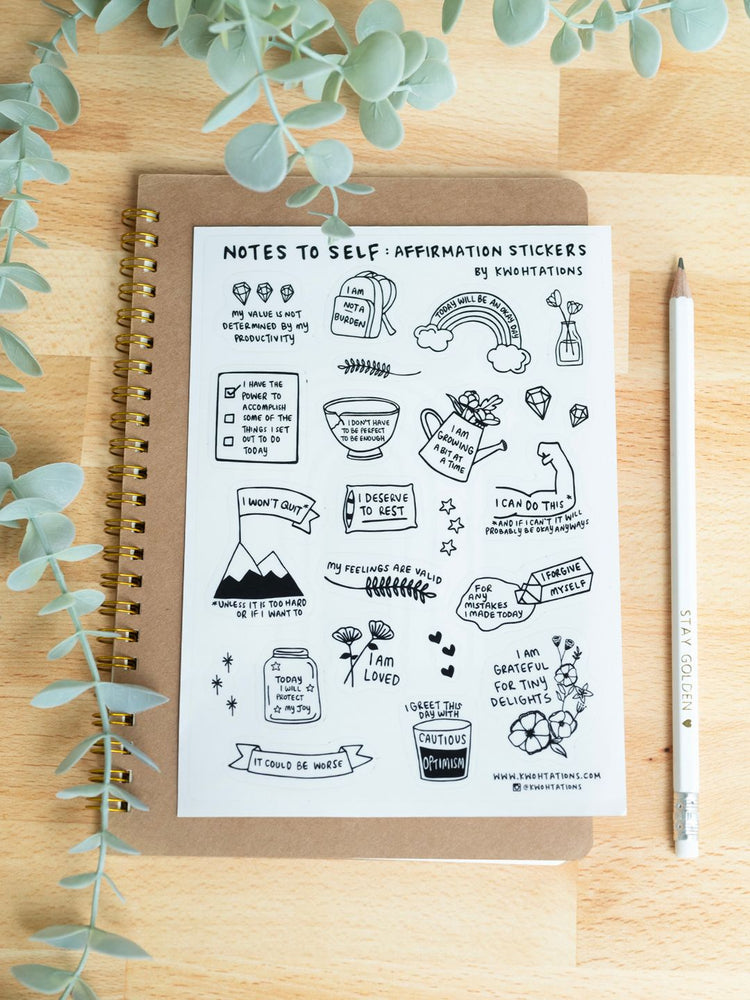 NOTES TO SELF: AFFIRMATION STICKERS
BY KWOHTATIONS
MY VALUE IS NOT
DETERMINED BY MY
PRODUCTIVITY
I AM
NOT A
BURDEN
TODAY WILL BE AN OKAY DAY
I HAVE THE
POWER TO
ACCOMPLISH
SOME OF THE
THINGS I SET
OUT TO DO
TODAY
I DON'T HAVE
TO BE PERFECT
TO BE ENOUGH
I AM
GROWING
A BIT AT
A TIME
I CAN DO THIS*
*AND IF I CAN'T IT WILL
PROBABLY BE OKAY ANYWAYS
I WON'T QUIT*
*UNLESS IT IS TOO HARD
OR IF I WANT TO
I DESERVE
TO REST
MY FEELINGS ARE VALID
FOR
ANY
MISTAKES
I MADE TODAY
I FORGIVE
MYSELF
TODAY
I WILL
PROTECT
MY JOY
I AM
LOVED
I GREET THIS
DAY WITH
CAUTIOUS
OPTIMISM
I AM
GRATEFUL
FOR TINY
DELIGHTS
IT COULD BE WORSE
WWW.KWOHTATIONS.COM
@KWOHTATIONS
STAY GOLDEN